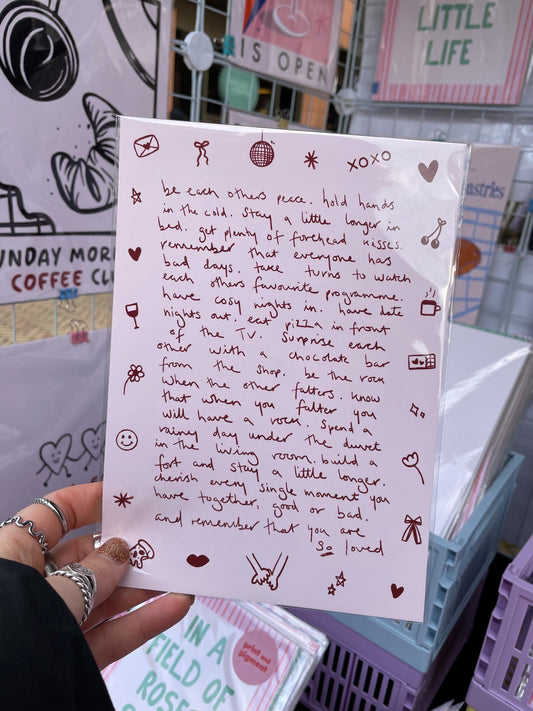 LITTLE
LIFE
IS OPEN
SUNDAY MOR
COFFEE CLU
astries
XOXO
be each others peace. hold hands
in the cold. stay a little longer in
bed. get plenty of forehead kisses.
remember that everyone has
bad days. take turns to watch
each others favourite programme.
have cosy nights in. have date
nights out. eat pizza in front
of the TV. surprise each
other with a chocolate bar
from the shop. be the rock
when the other falters. know
that when you falter you
will have a rock. spend a
rainy day under the duvet
in the living room. build a
fort and stay a little longer.
cherish every single moment you
have together, good or bad.
and remember that you are
so loved
IN A
FIELD OF
ROSES
print and
pigment